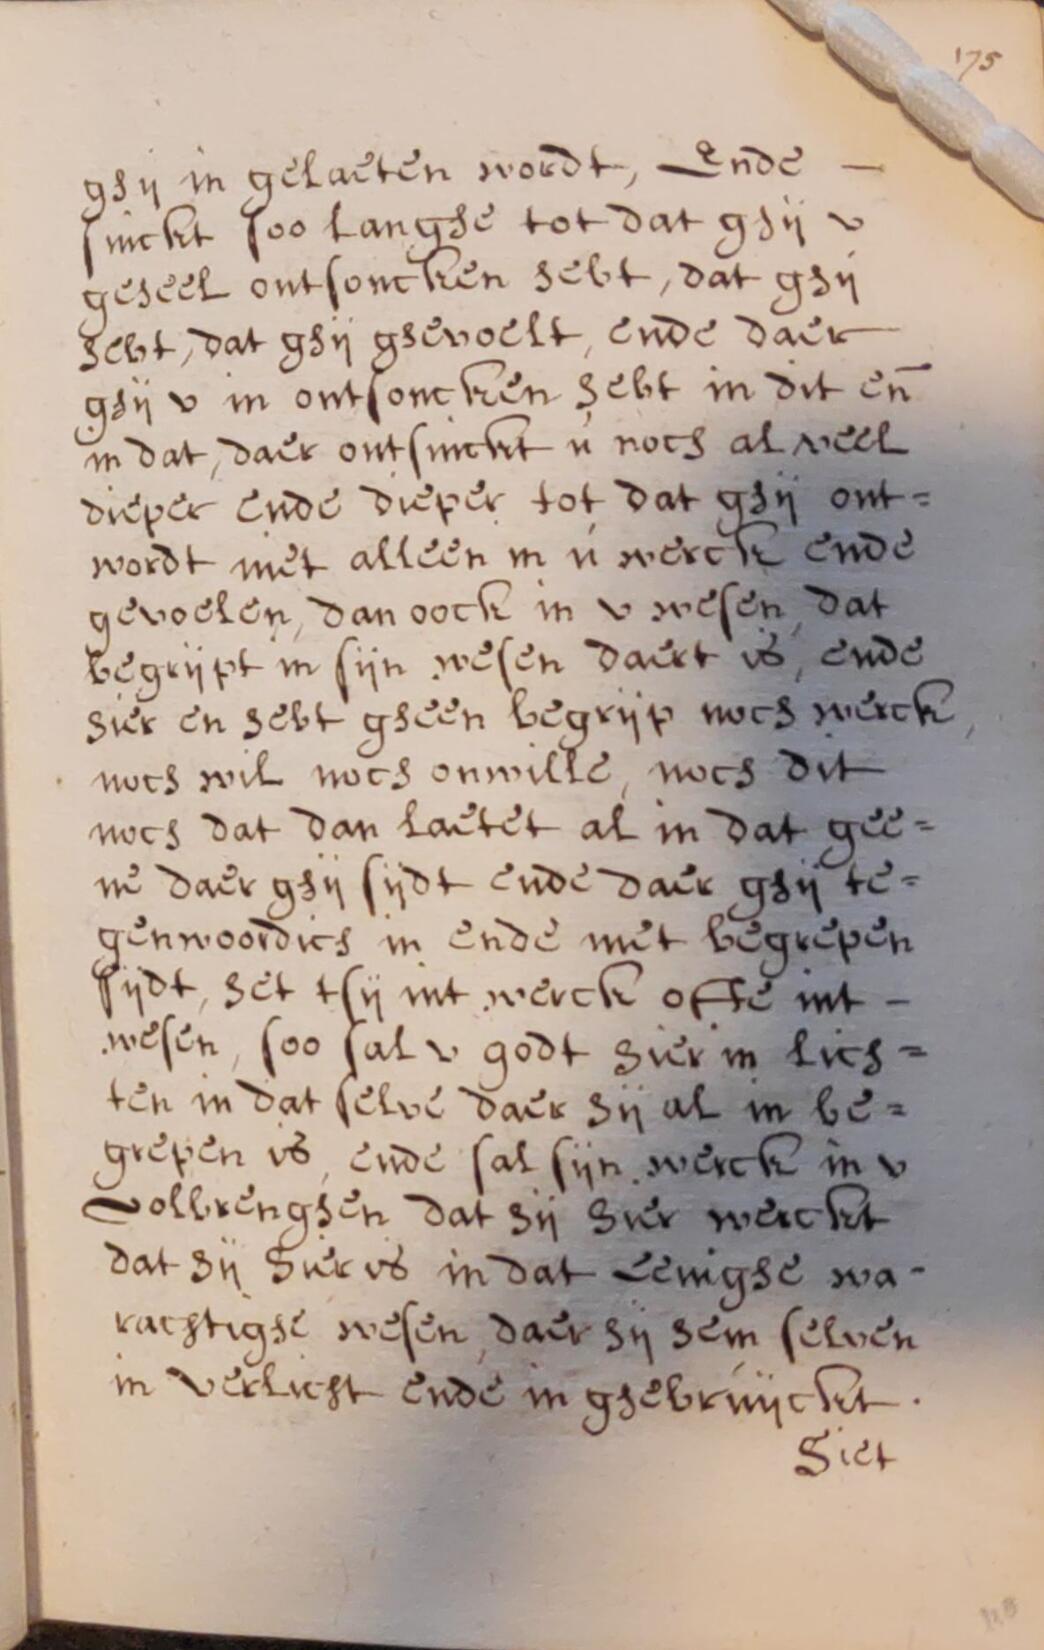 175
ghij in gelaeten wordt, Ende —
sinckt soo langhe tot dat ghij v
geheel ontsoncken hebt, dat ghij
hebt, dat ghij ghevoelt, ende daer
ghij v in ontsoncken hebt in dit en̄
in dat, daer ontsinckt ú noch al veel
dieper ende dieper tot dat ghij ont=
wordt niet alleen in ú werck ende
gevoelen, dan oock in v wesen, dat
begrijpt in sijn wesen daert is, ende
hier en hebt gheen begrijp noch werck,
noch wil noch onwille, noch dit
noch dat dan laetet al in dat gee=
ne daer ghij sijdt ende daer ghij te=
genwoordich in ende met begrepen
sijdt, het tsij int werck offte int —
wesen, soo sal v godt hier in lich=
ten in dat selve daer hij al in be=
grepen is, ende sal sijn werck in v
volbrenghen dat hij hier werckt
dat hij hier is in dat eenighe wa-
rachtighe wesen, daer hij hem selven
in verlicht ende in ghebruijckt.
Siet